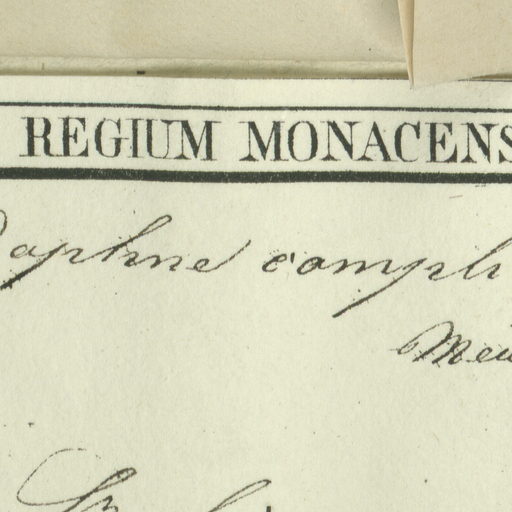 REGIUM MONACENS
Daphne compli
Mei